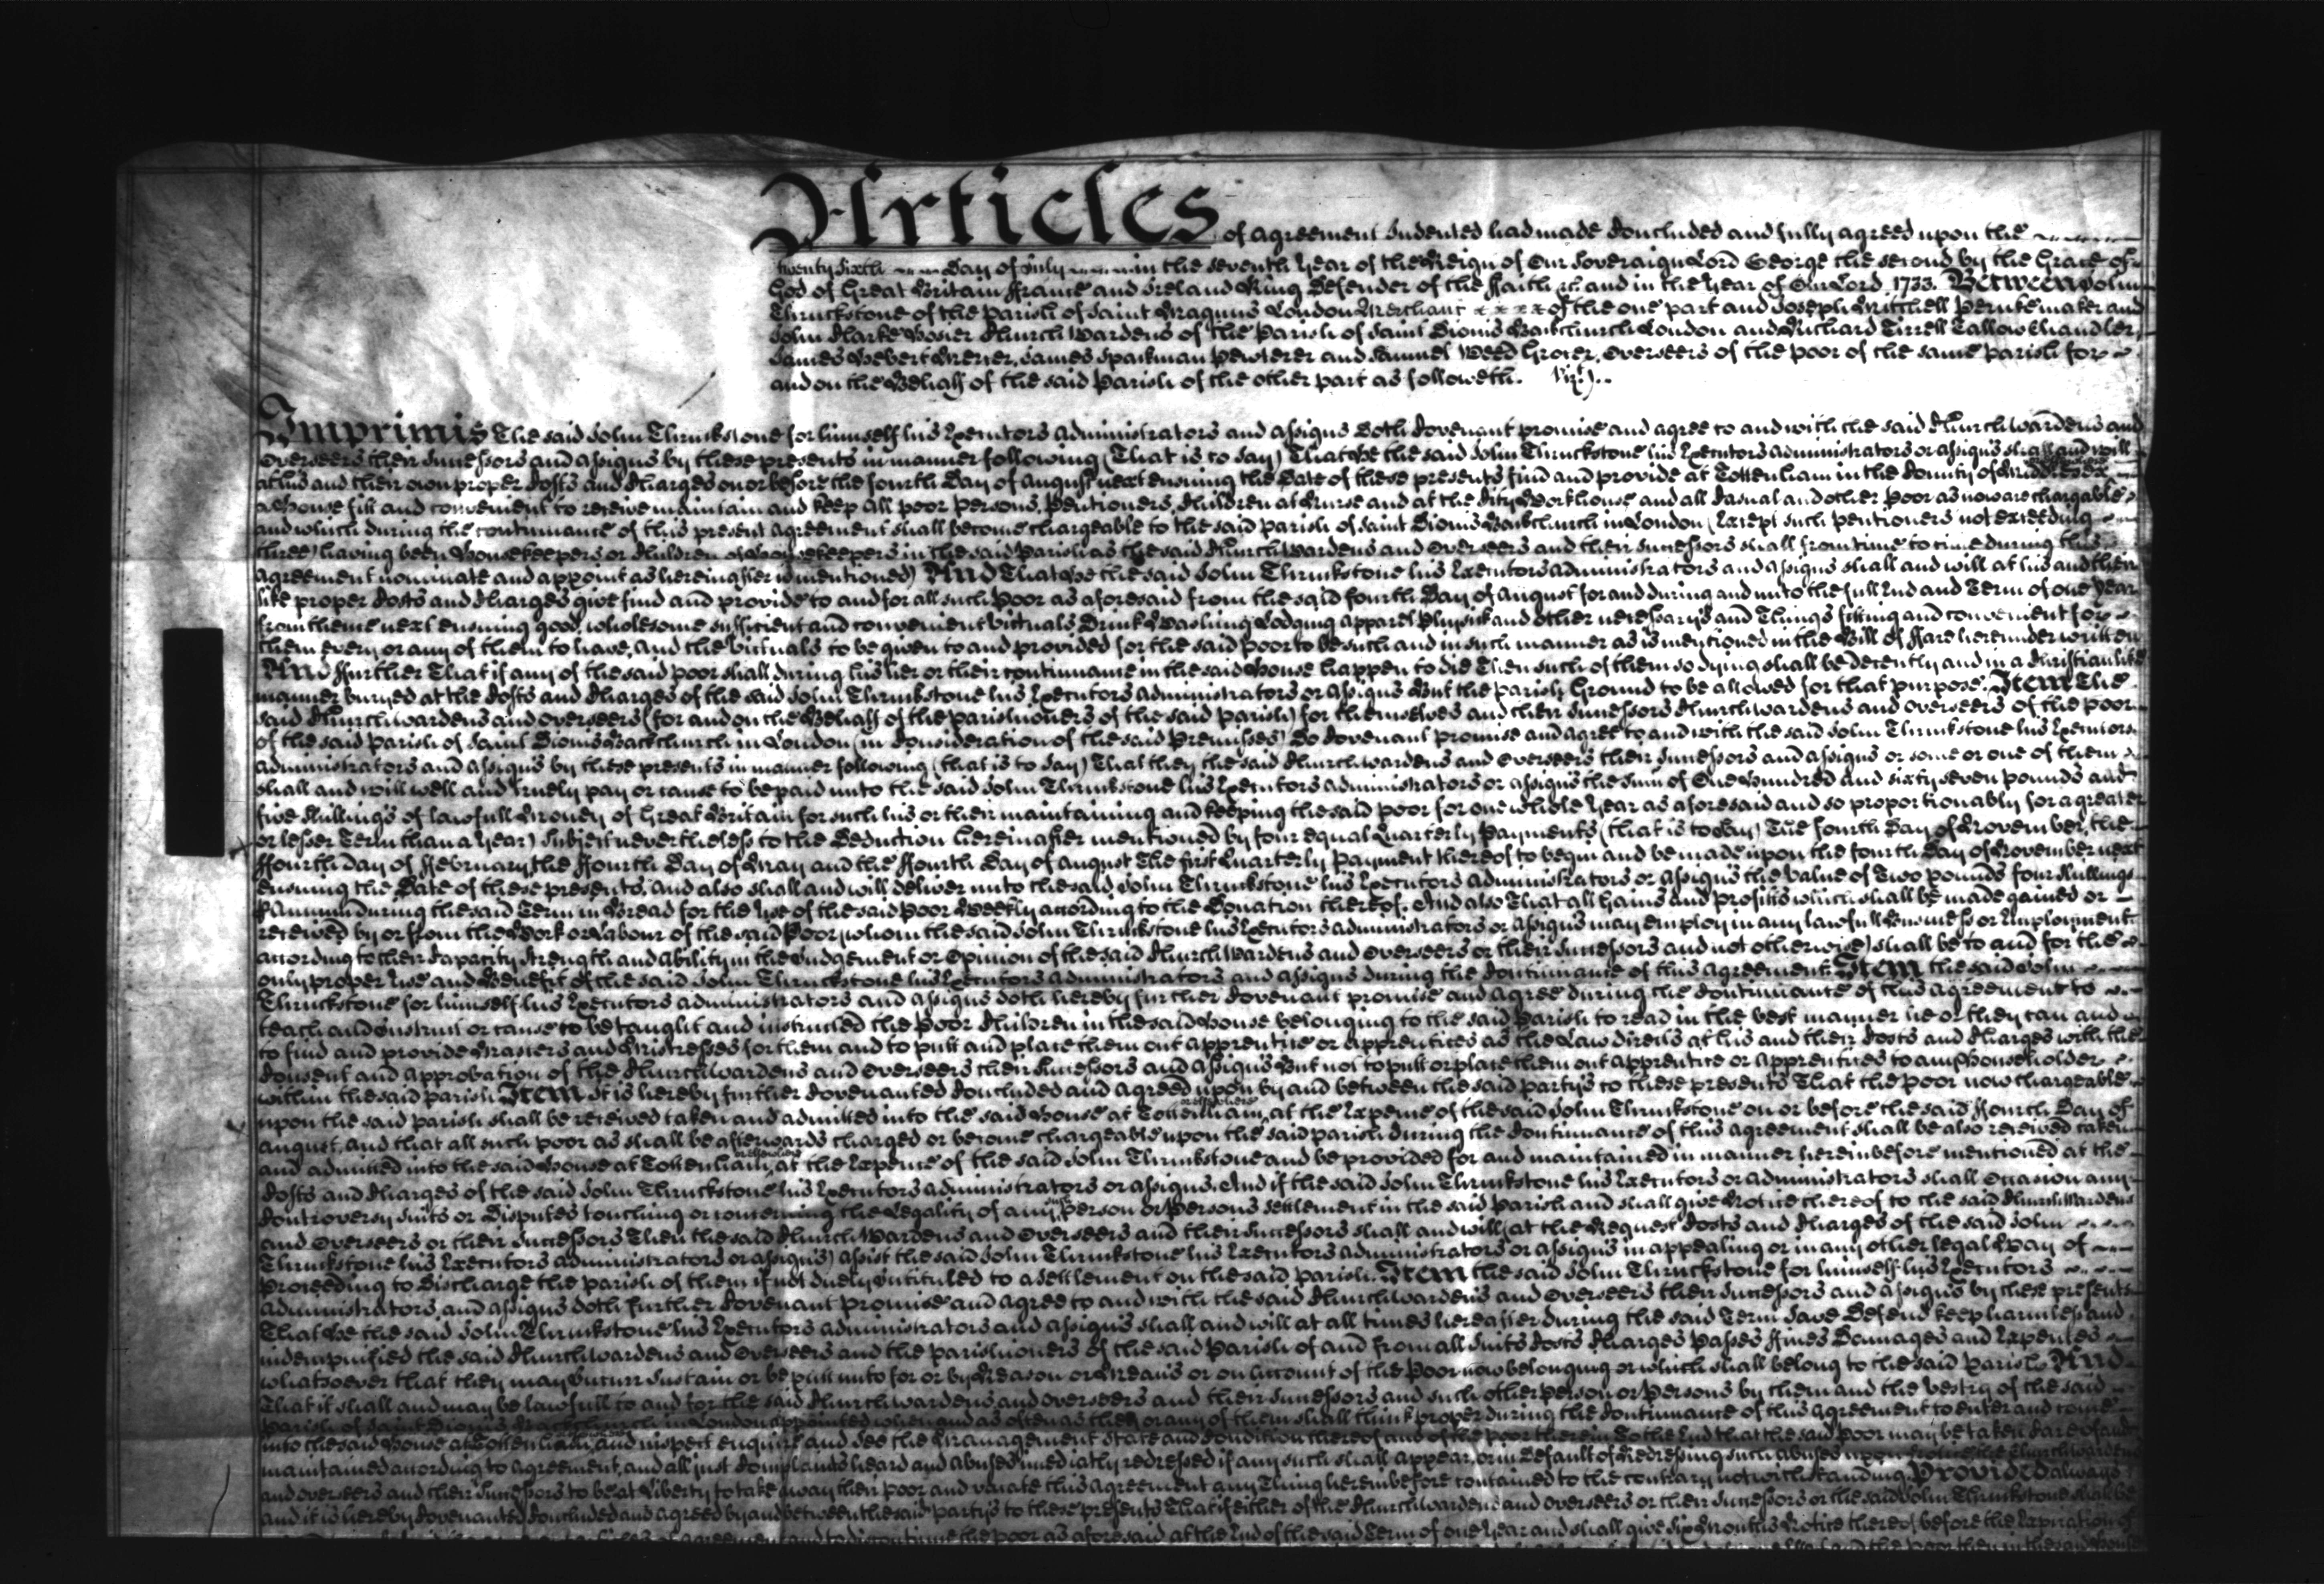 Articles of agreement Indented had made Concluded and fully agreed upon the
twenty sixth Day of July in the seventh Year of the Reign of Our Soveraign Lord George the second by the Grace of
God of Great Britain France and Ireland King Defender of the Faith &c and in the Year of Our Lord 1733. Between John
Thruckstone of the Parish of Saint Magnus London Merchant x x x x of the one part and Joseph Mitchell Peruke maker and
John Clarke Hosier Church Wardens of the Parish of Saint Dionis Backchurch London and Richard Tirrell Tallow Chandler,
James Hebert Mercer, James Spackman Pewterer and Samuel Weed Grocer, Overseers of the poor of the same parish for
and on the Behalf of the said Parish of the other part as followeth. Vizt)..
Imprimis The said John Thruckstone for himself his Executors Administrators and assigns Doth Covenant promise and agree to and with the said Church Wardens and
Overseers their Successors and assigns by these presents in manner following (That is to say) That he the said John Thruckstone his Executors Administrators or assigns shall and will
at his and their own proper Costs and Charges on or before the fourth Day of August next ensuing the Date of these presents find and provide at Tottenham in the County of Middlesex
a House fitt and convenient to receive maintain and keep all poor Persons, Pentioners, Children at Nurse and at the City Workhouse, and all Casual and other Poor as now are chargable
and which during the continuance of this present agreement shall become chargeable to the said parish of saint Dionis Backchurch in London (Except such pentioners not exceeding
three) having been Housekeepers or Children of Housekeepers in the said Parish as the said Church Wardens and Overseers and their successors shall from time to time during this
agreement nominate and appoint as hereinafter is mentioned) And That he the said John Thruckstone his Executors Administrators and assigns shall and will at his and their
like proper Costs and Charges give find and provide to and for all such Poor as aforesaid from the said fourth Day of August for and during and unto the full End and Term of one Year
from thence next ensuing good, wholesome sufficient and convenient Victuals Drink Washing Lodging apparel Physick and other necessarys and Things fitting and convenient for
them every or any of them to have, and the Victuals to be given to and provided for the said Poor to be such and in such manner as is mentioned in the Bill of Fare hereunder written
And Further That if any of the said poor shall during his her or their continuance in the said House happen to die Then such of them so dying shall be decently and in a Christian like
manner buryed at the Costs and Charges of the said John Thruckstone his Executors Administrators or assigns But the parish Ground to be allowed for that purpose. Item The
said Church Wardens and Overseers (for and on the Behalf of the parishioners of the said Parish) for themselves and their Successors Church Wardens and Overseers of the poor
of the said Parish of Saint Dionis Backchurch in London (in Consideration of the said Premisses) Do Covenant promise and agree to and with the said John Thruckstone his Executors
Administrators and assigns by these presents in manner following (that is to say) That they the said Church Wardens and Overseers their Successors and assigns or some or one of them
shall and will well and truely pay or cause to be paid unto the said John Thruckstone his Executors Administrators or assigns the sum of One Hundred and sixty seven pounds and
five shillings of lawfull Money of Great Britain for such his or their maintaining and keeping the said poor for one whole Year as aforesaid and so proportionably for a greater
or lesser Term than a Year) Subject nevertheless to the Deduction hereinafter mentioned by four equal Quarterly Payments (that is to say) The fourth Day of November, the
Fourth Day of February, the Fourth Day of May and the Fourth Day of August The first Quarterly Payment thereof to begin and be made upon the fourth Day of November next
ensuing the Date of these presents, and also shall and will deliver unto the said John Thruckstone his Executors Administrators or assigns the Value of Two pounds four shillings
P Annum during the said Term in Bread for the Use of the said Poor Weekly according to the Donation thereof. And also That all Gains and Profitts which shall be made gained or
received by or from the Work or Labour of the said Poor (whom the said John Thruckstone his Executors Administrators or assigns may employ in any lawfull Business or Employment
according to their Capacity strength and ability in the Judgement or Opinion of the said Church Wardens and Overseers or their Successors and not otherwise) shall be to and for the
only proper Use and Benefit of the said John Thruckstone his Executors Administrators and assigns during the Continuance of this agreement. Item the said John
Thruckstone for himself his Executors Administrators and assigns doth hereby further Covenant promise and agree during the Continuance of this agreement to
teach and Instruct or cause to be taught and instructed the Poor Children in the said House belonging to the said Parish to read in the best manner he or they can and
to find and provide Masters and Mistresses for them and to putt and place them out apprentice or apprentices as the Law directs at his and their Costs and Charges with the
Consent and approbation of the Church Wardens and Overseers their Successors and assigns But not to putt or place them out apprentice or apprentices to any Householder
within the said parish. Item it is hereby further Covenanted Concluded and agreed upon by and between the said partys to these presents That the poor now chargeable
or elsewhere
upon the said parish shall be received taken and admitted into the said House at Tottenham, at the Expence of the said John Thruckstone on or before the said Fourth Day of
August, and that all such poor as shall be afterwards charged or become chargeable upon the said parish during the Continuance of this agreement shall be also received taken
or elsewhere
and admitted into the said House at Tottenham, at the Expence of the said John Thruckstone and be provided for and maintained in manner hereinbefore mentioned at the
Costs and Charges of the said John Thruckstone his Executors Administrators or assigns. And if the said John Thruckstone his Executors or Administrators shall Occasion any
Controversy Suits or Disputes touching or concerning the Legality of any such Person or Persons settlement in the said Parish and shall give Notice thereof to the said Church Wardens
and Overseers or their Successors Then the said Church Wardens and Overseers and their Successors shall and will (at the Request Costs and Charges of the said John
Thruckstone his Executors Administrators or assigns) assist the said John Thruckstone his Executors Administrators or assigns in appealing or in any other legal Way of
Proceeding to Discharge the parish of them if not duely Intituled to a settlement on the said parish. Item the said John Thruckstone for himself his Executors
Administrators, and assigns doth further Covenant Promise and agree to and with the said Church Wardens and Overseers their Successors and assigns by these presents
That he the said John Thruckstone his Executors Administrators and assigns shall and will at all times hereafter during the said Term Save Defend keep harmless and
indempnified the said Church Wardens and Overseers and the parishioners of the said Parish of and from all Suits Costs Charges Passes Fines Damages and Expences
whatsoever that they may Incurr Sustain or be putt unto for or by Reason or Means or on Account of the Poor now belonging or which shall belong to the said Parish. And
That it shall and may be lawfull to and for the said Church Wardens and Overseers and their Successors and such other Person or Persons by them and the Vestry of the said
Parish of Saint Dionis Backchurch in London appointed when and as often as they or any of them shall think proper during the Continuance of this agreement to enter and come
into the said House at Tottenham and inspect enquire and See the Management State and Condition thereof and of the poor therein To the End that the said Poor may be taken Care of and
maintained according to agreement, and all just Complaints heard and abuses imediatly redressed if any such shall appear, or in Default of Redressing such abuses upon Notice, the Church Wardens
and Overseers and their Successors to be at Liberty to take away their poor and vacate this agreement any Thing hereinbefore contained to the contrary notwithstanding. Provided always
and it is hereby Covenanted Concluded and agreed by and between the said partys to these presents That if either of the Church Wardens and Overseers or their Successors or the said John Thruckstone shall be
agreement and to discontinue the poor as aforesaid at the End of the said Term of one Year and shall give six Months Notice thereof before the Expiration of